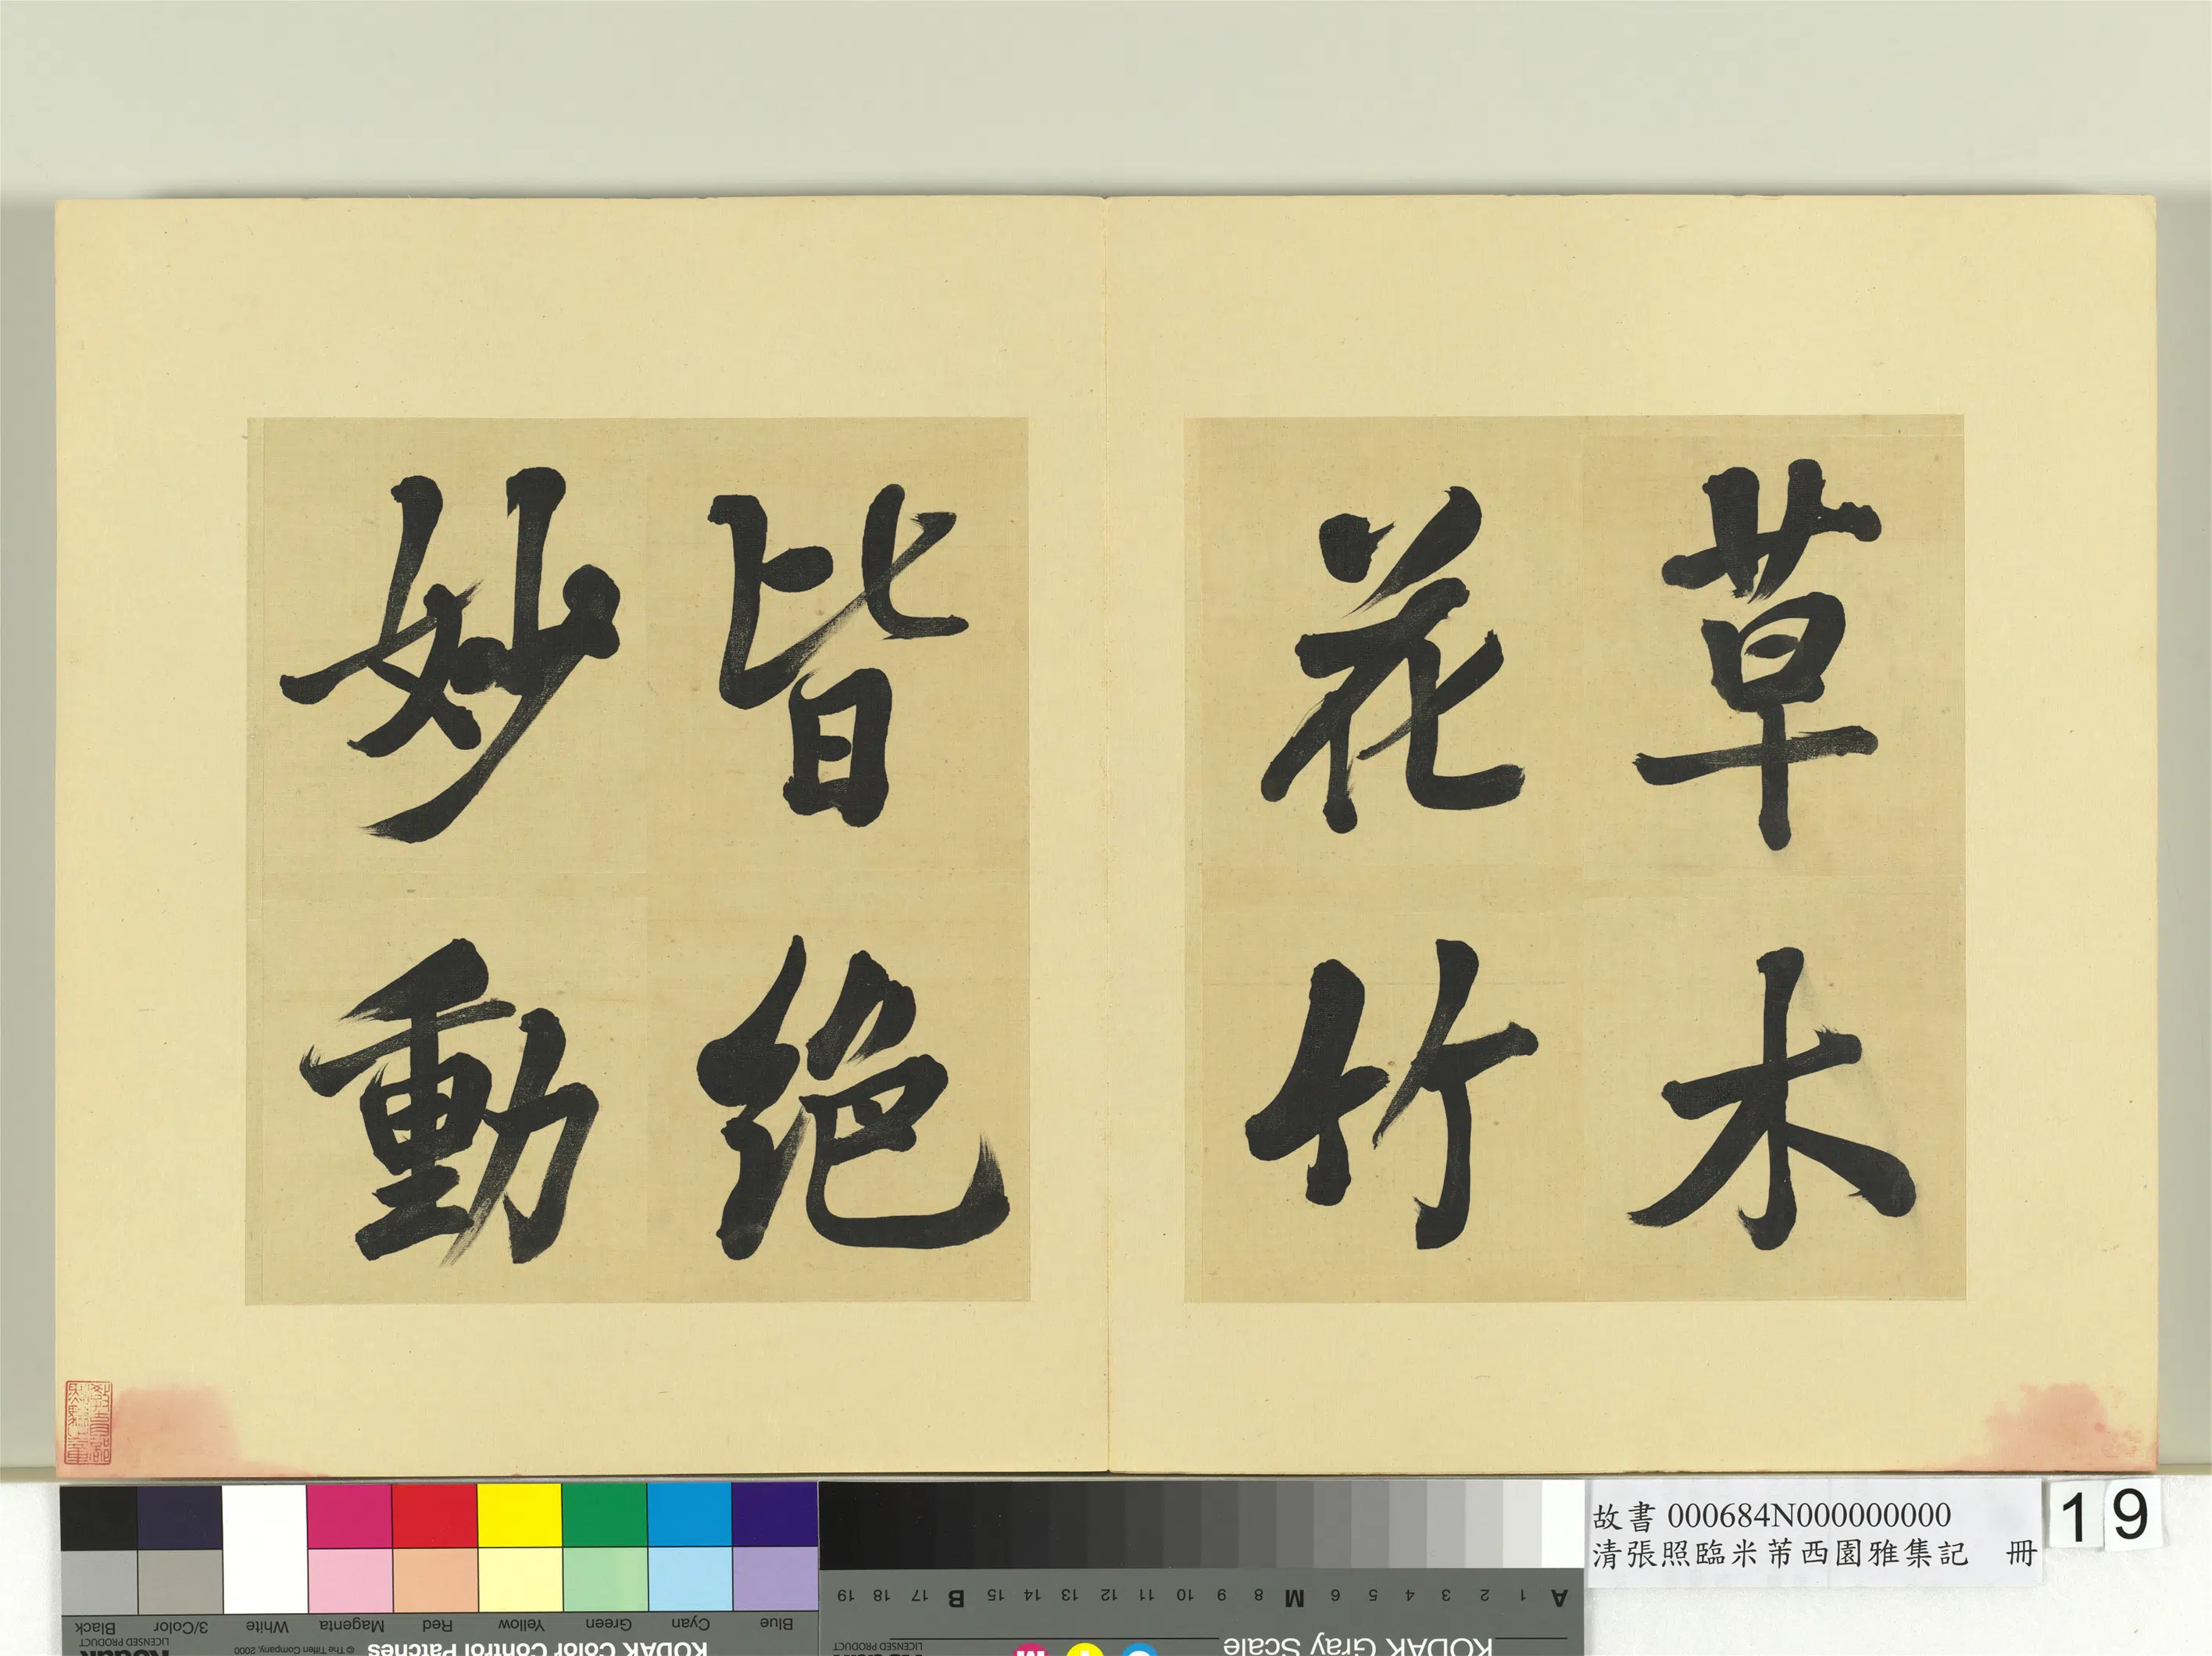 草木
花竹
皆絶
妙動
故書 000684N000000000
清張照臨米芾西園雅集記 冊
19
Blue Cyan Green Yellow Red Magenta White 3/Color Black
KODAK Color Control Patches
© The Tiffen Company, 2000
Kodak
LICENSED PRODUCT
A 1 2 3 4 5 6 M 8 9 10 11 12 13 14 15 B 17 18 19
KODAK Gray Scale
C Y M
LICENSED PRODUCT